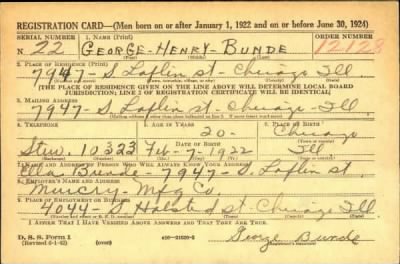 REGISTRATION CARD—(Men born on or after January 1, 1922 and on or before June 30, 1924)
SERIAL NUMBER 1. NAME (Print) ORDER NUMBER
N. 22 GEORGE-HENRY-BUNDE 12128
(First) (Middle) (Last)
2. PLACE OF RESIDENCE (Print)
7947-S Laflin st- Chicago Ill
[THE PLACE OF RESIDENCE GIVEN ON THE LINE ABOVE WILL DETERMINE LOCAL BOARD
JURISDICTION; LINE 2 OF REGISTRATION CERTIFICATE WILL BE IDENTICAL]
3. MAILING ADDRESS
7947-S Laflin st- Chicago-Ill.
4. TELEPHONE 5. AGE IN YEARS 6. PLACE OF BIRTH
20- Chicago
DATE OF BIRTH
Stew. 10323 Feb-7-1922 Ill
7. NAME AND ADDRESS OF PERSON WHO WILL ALWAYS KNOW YOUR ADDRESS
Ella Bunde-7947-S Laflin st
8. EMPLOYER'S NAME AND ADDRESS
Murcry-Mfg Co.
9. PLACE OF EMPLOYMENT OR BUSINESS
4044-S Halsted st-Chicago Ill
I AFFIRM THAT I HAVE VERIFIED ABOVE ANSWERS AND THAT THEY ARE TRUE.
D. S. S. Form 1
(Revised 6-1-42) (over)
George Bunde